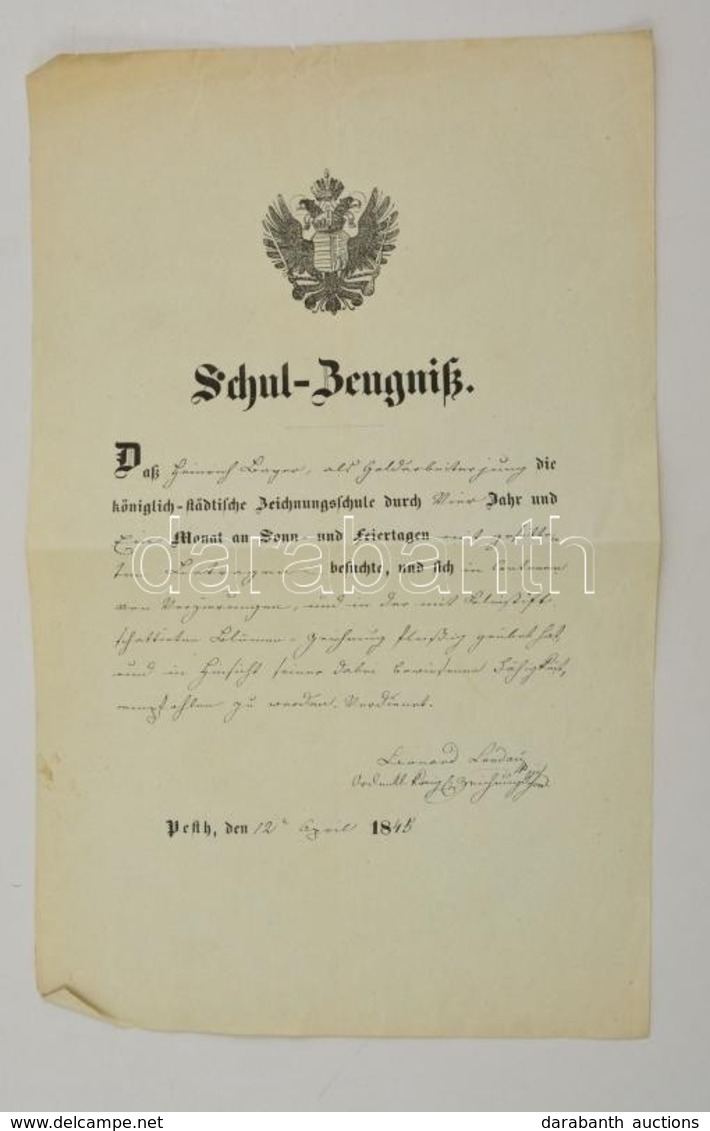 Schul-Zeugniß.
Daß Heinrich Bayer, als Goldarbeiterjung die
königlich-städtische Zeichnungsschule durch Vier Jahr und
Ein Monat an Sonn- und Feiertagen mit
besuchte, und sich in
von Verzierungen, und in der mit Bleistift
schattirten Blumen-Zeichnung fleißig geübet hat,
und in Hinsicht seiner dabei bewiesenen Fähigkeit,
empfohlen zu werden. Verdienet.
Landau
Pesth, den 12n April 1845
darabanth
www.darabanth.hu
darabanth auctions